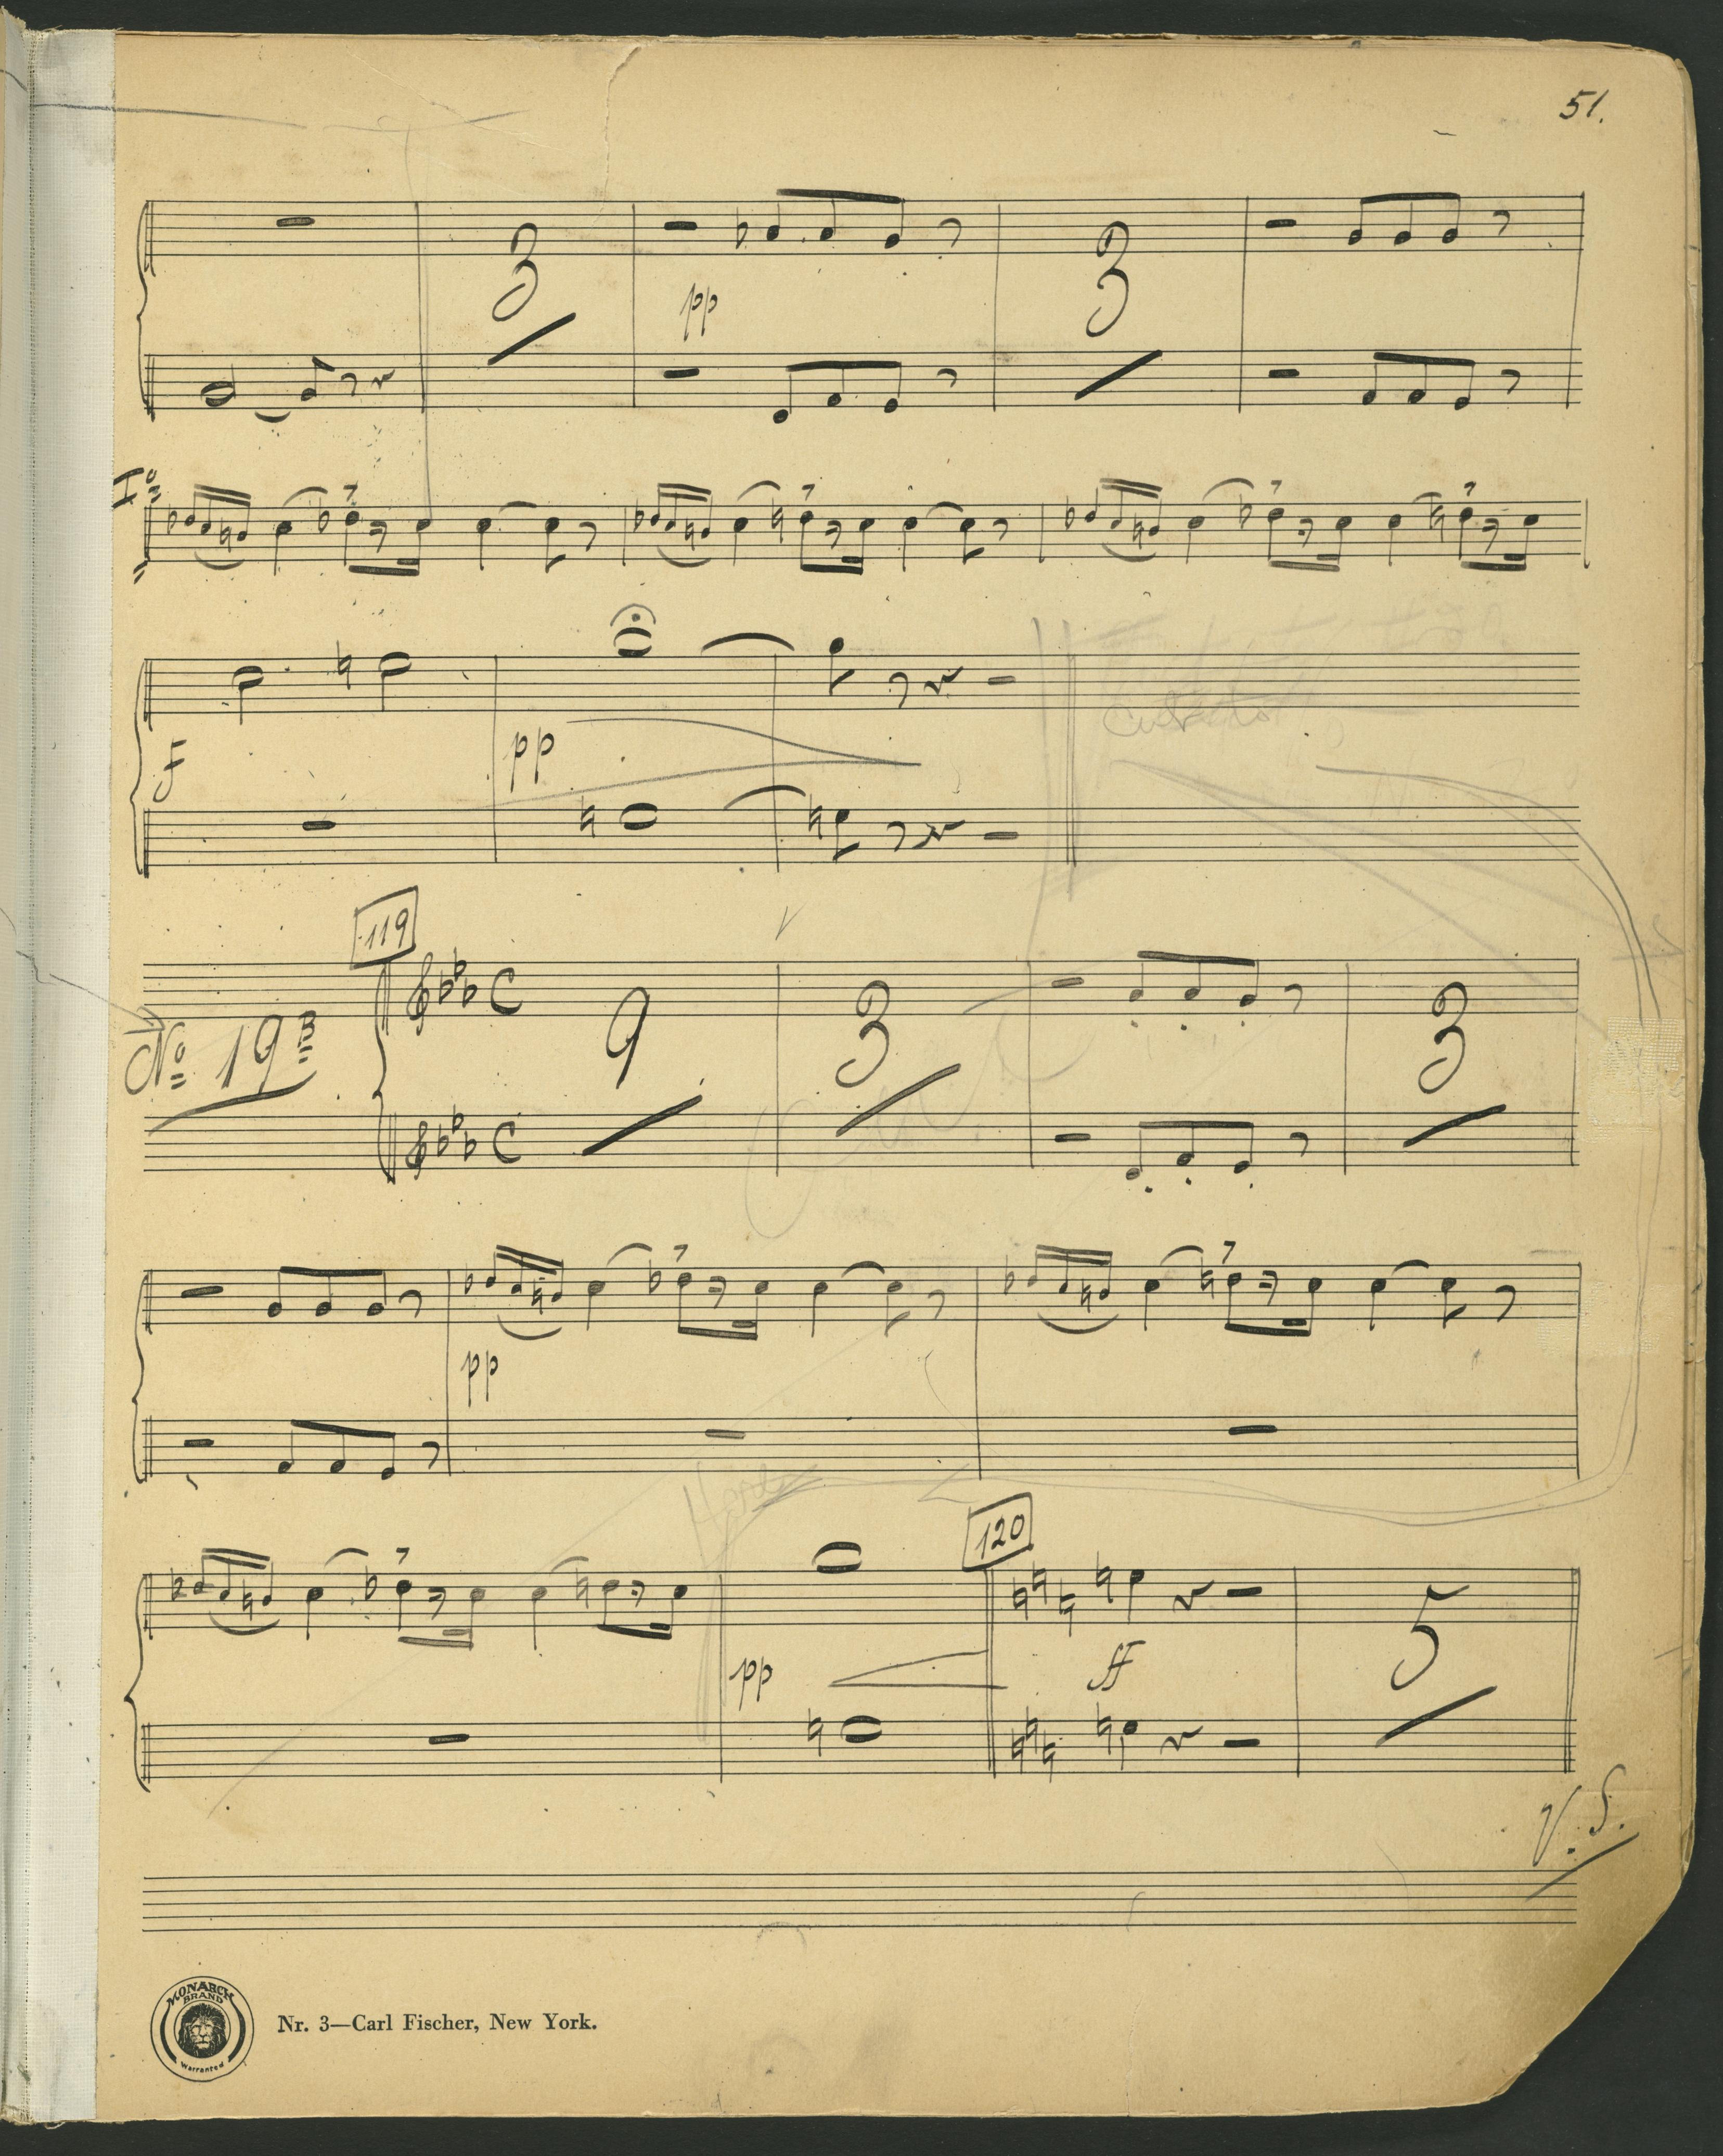 51.
3 3
pp
Iº
f pp
119
9 3 3
Nº 19B
pp
120
pp ff 5
V.S.
MONARCH
BRAND
Warranted
Nr. 3—Carl Fischer, New York.